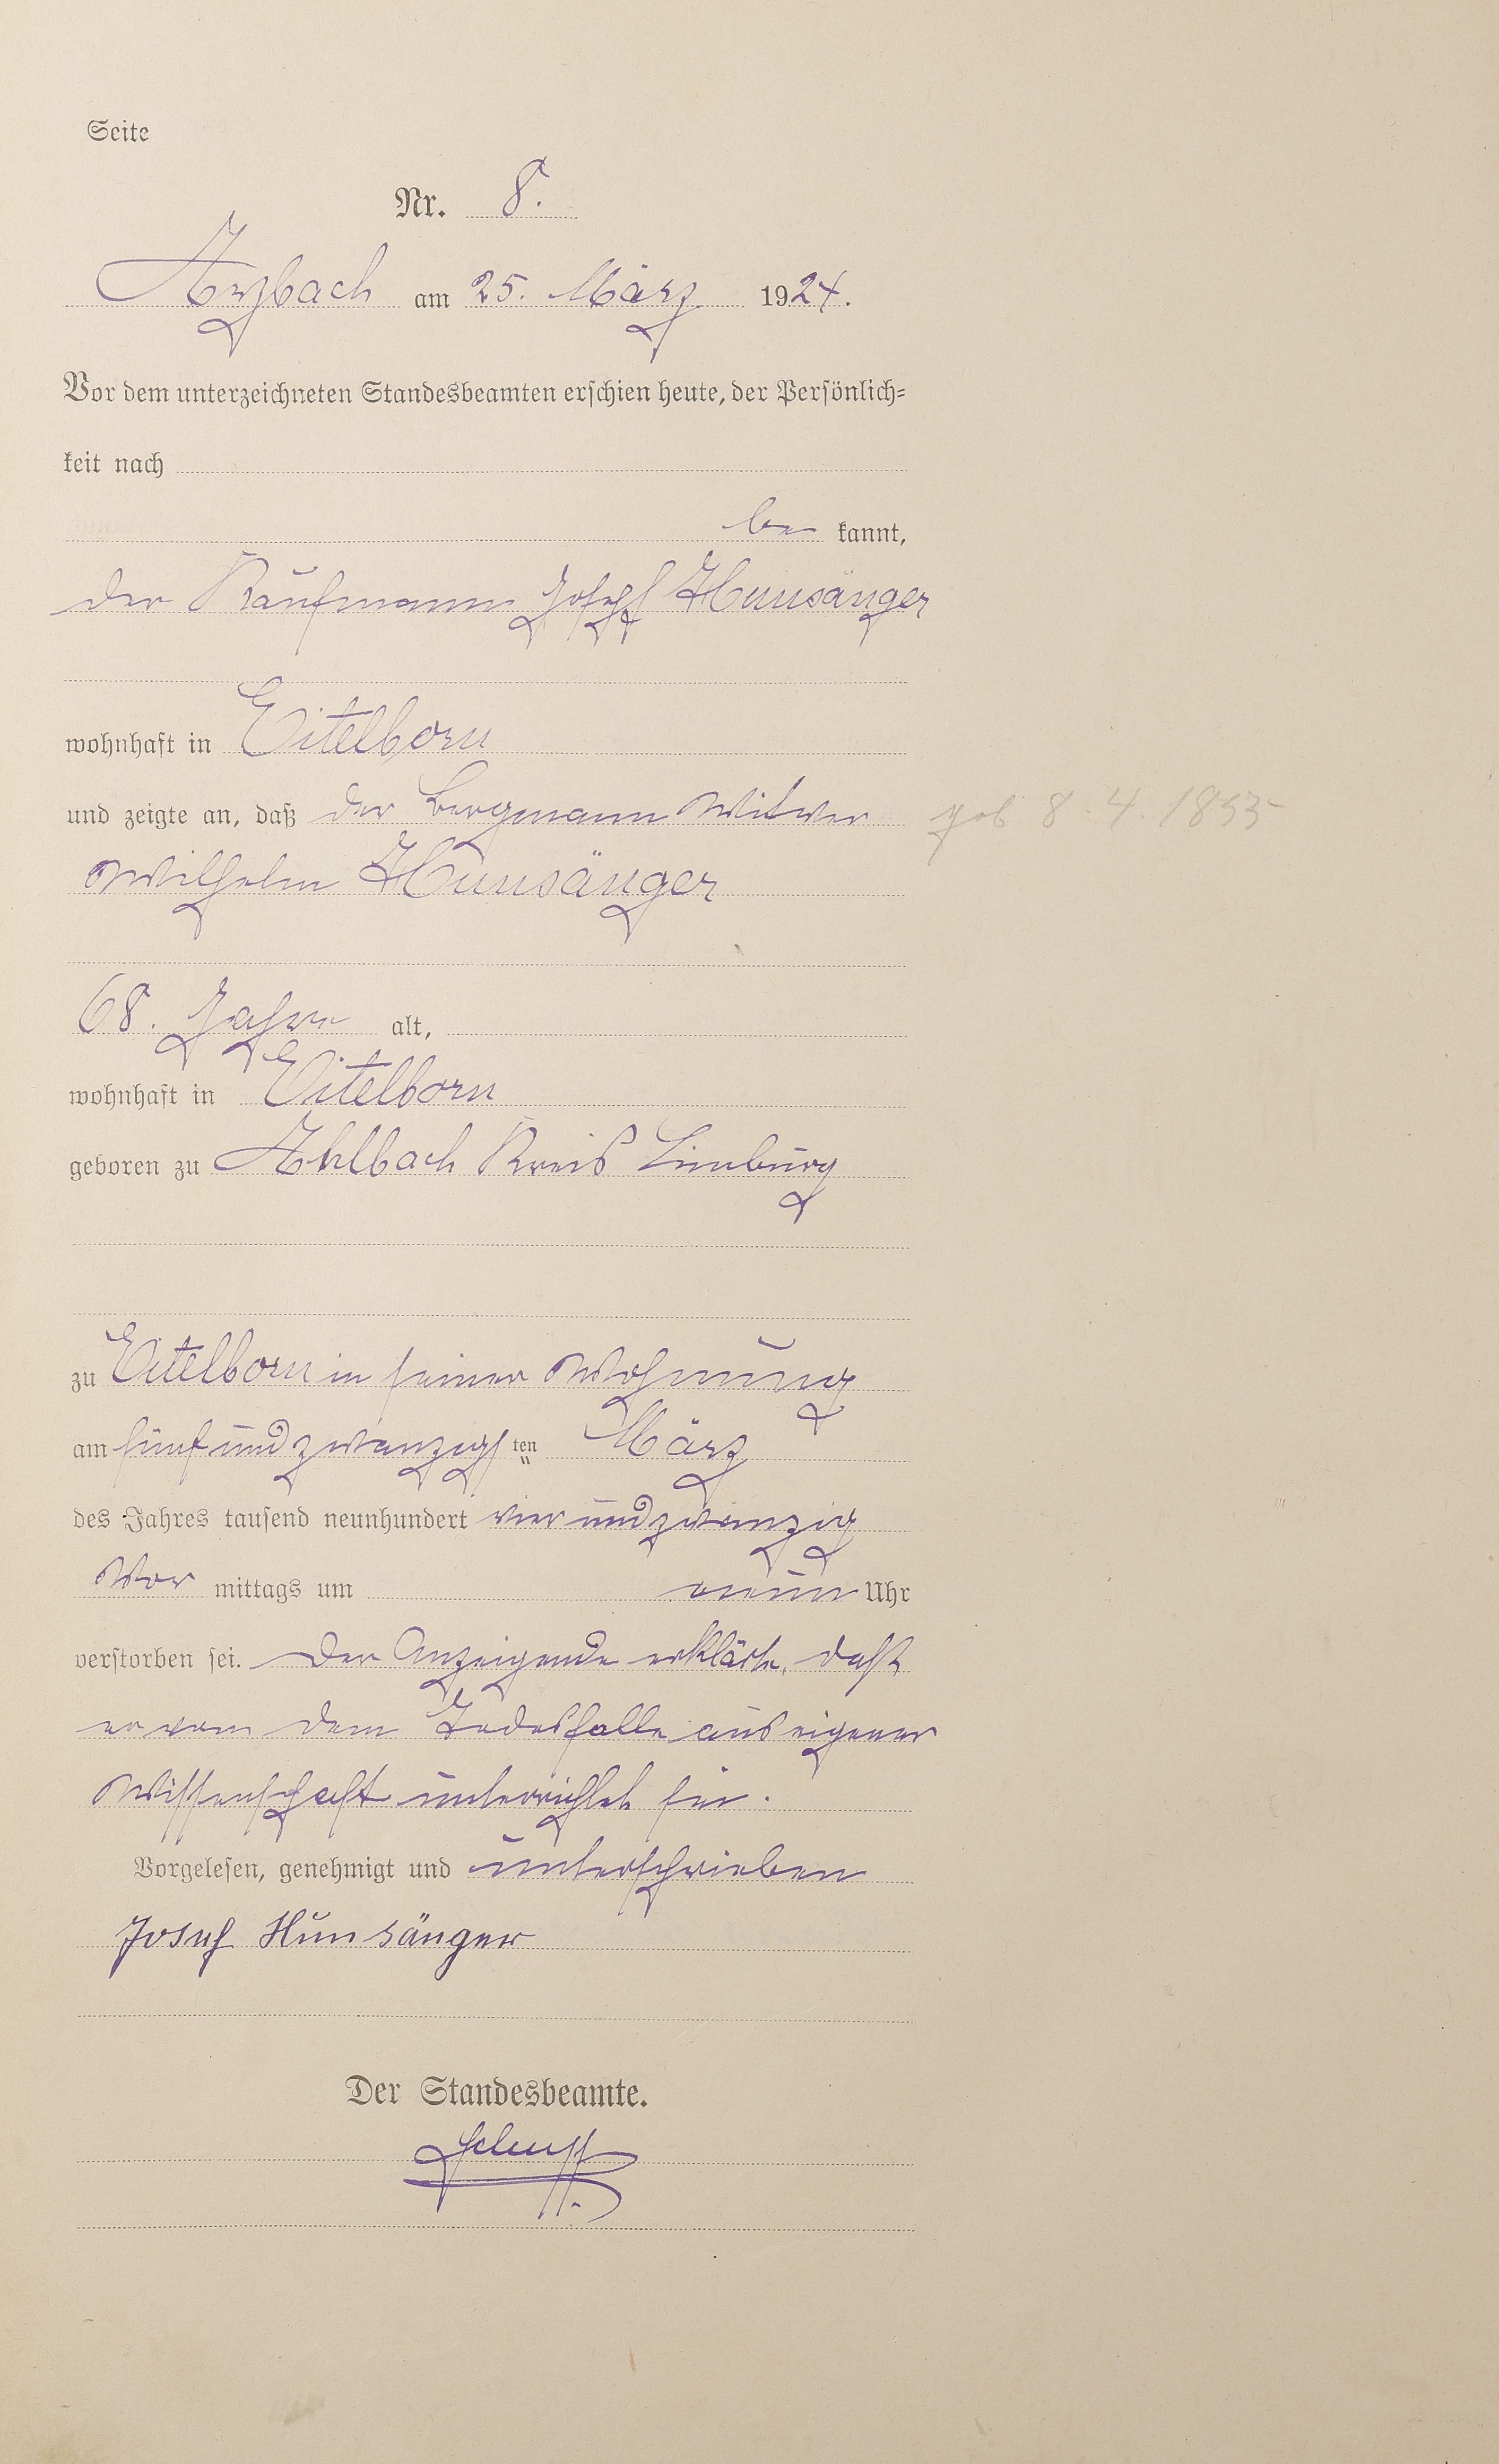 Seite
Nr. 8.
Arzbach am 25. März 1924.
Vor dem unterzeichneten Standesbeamten erschien heute, der Persönlich=
keit nach
be kannt,
der Kaufmann Joseph Hunsänger
wohnhaft in Eitelborn
und zeigte an, daß der Bergmann Witwer
geb 8. 4. 1855
Wilhelm Hunsänger
68. Jahre alt,
wohnhaft in Eitelborn
geboren zu Ahlbach Kreis Limburg
zu Eitelborn in seiner Wohnung
am fünfundzwanzigsten März
des Jahres tausend neunhundert vierundzwanzig
Vor mittags um neun Uhr
verstorben sei. Der Anzeigende erklärte, daß
er von dem Todesfalle aus eigener
Wissenschaft unterrichtet sei.
Vorgelesen, genehmigt und unterschrieben
Josef Hunsänger
Der Standesbeamte.